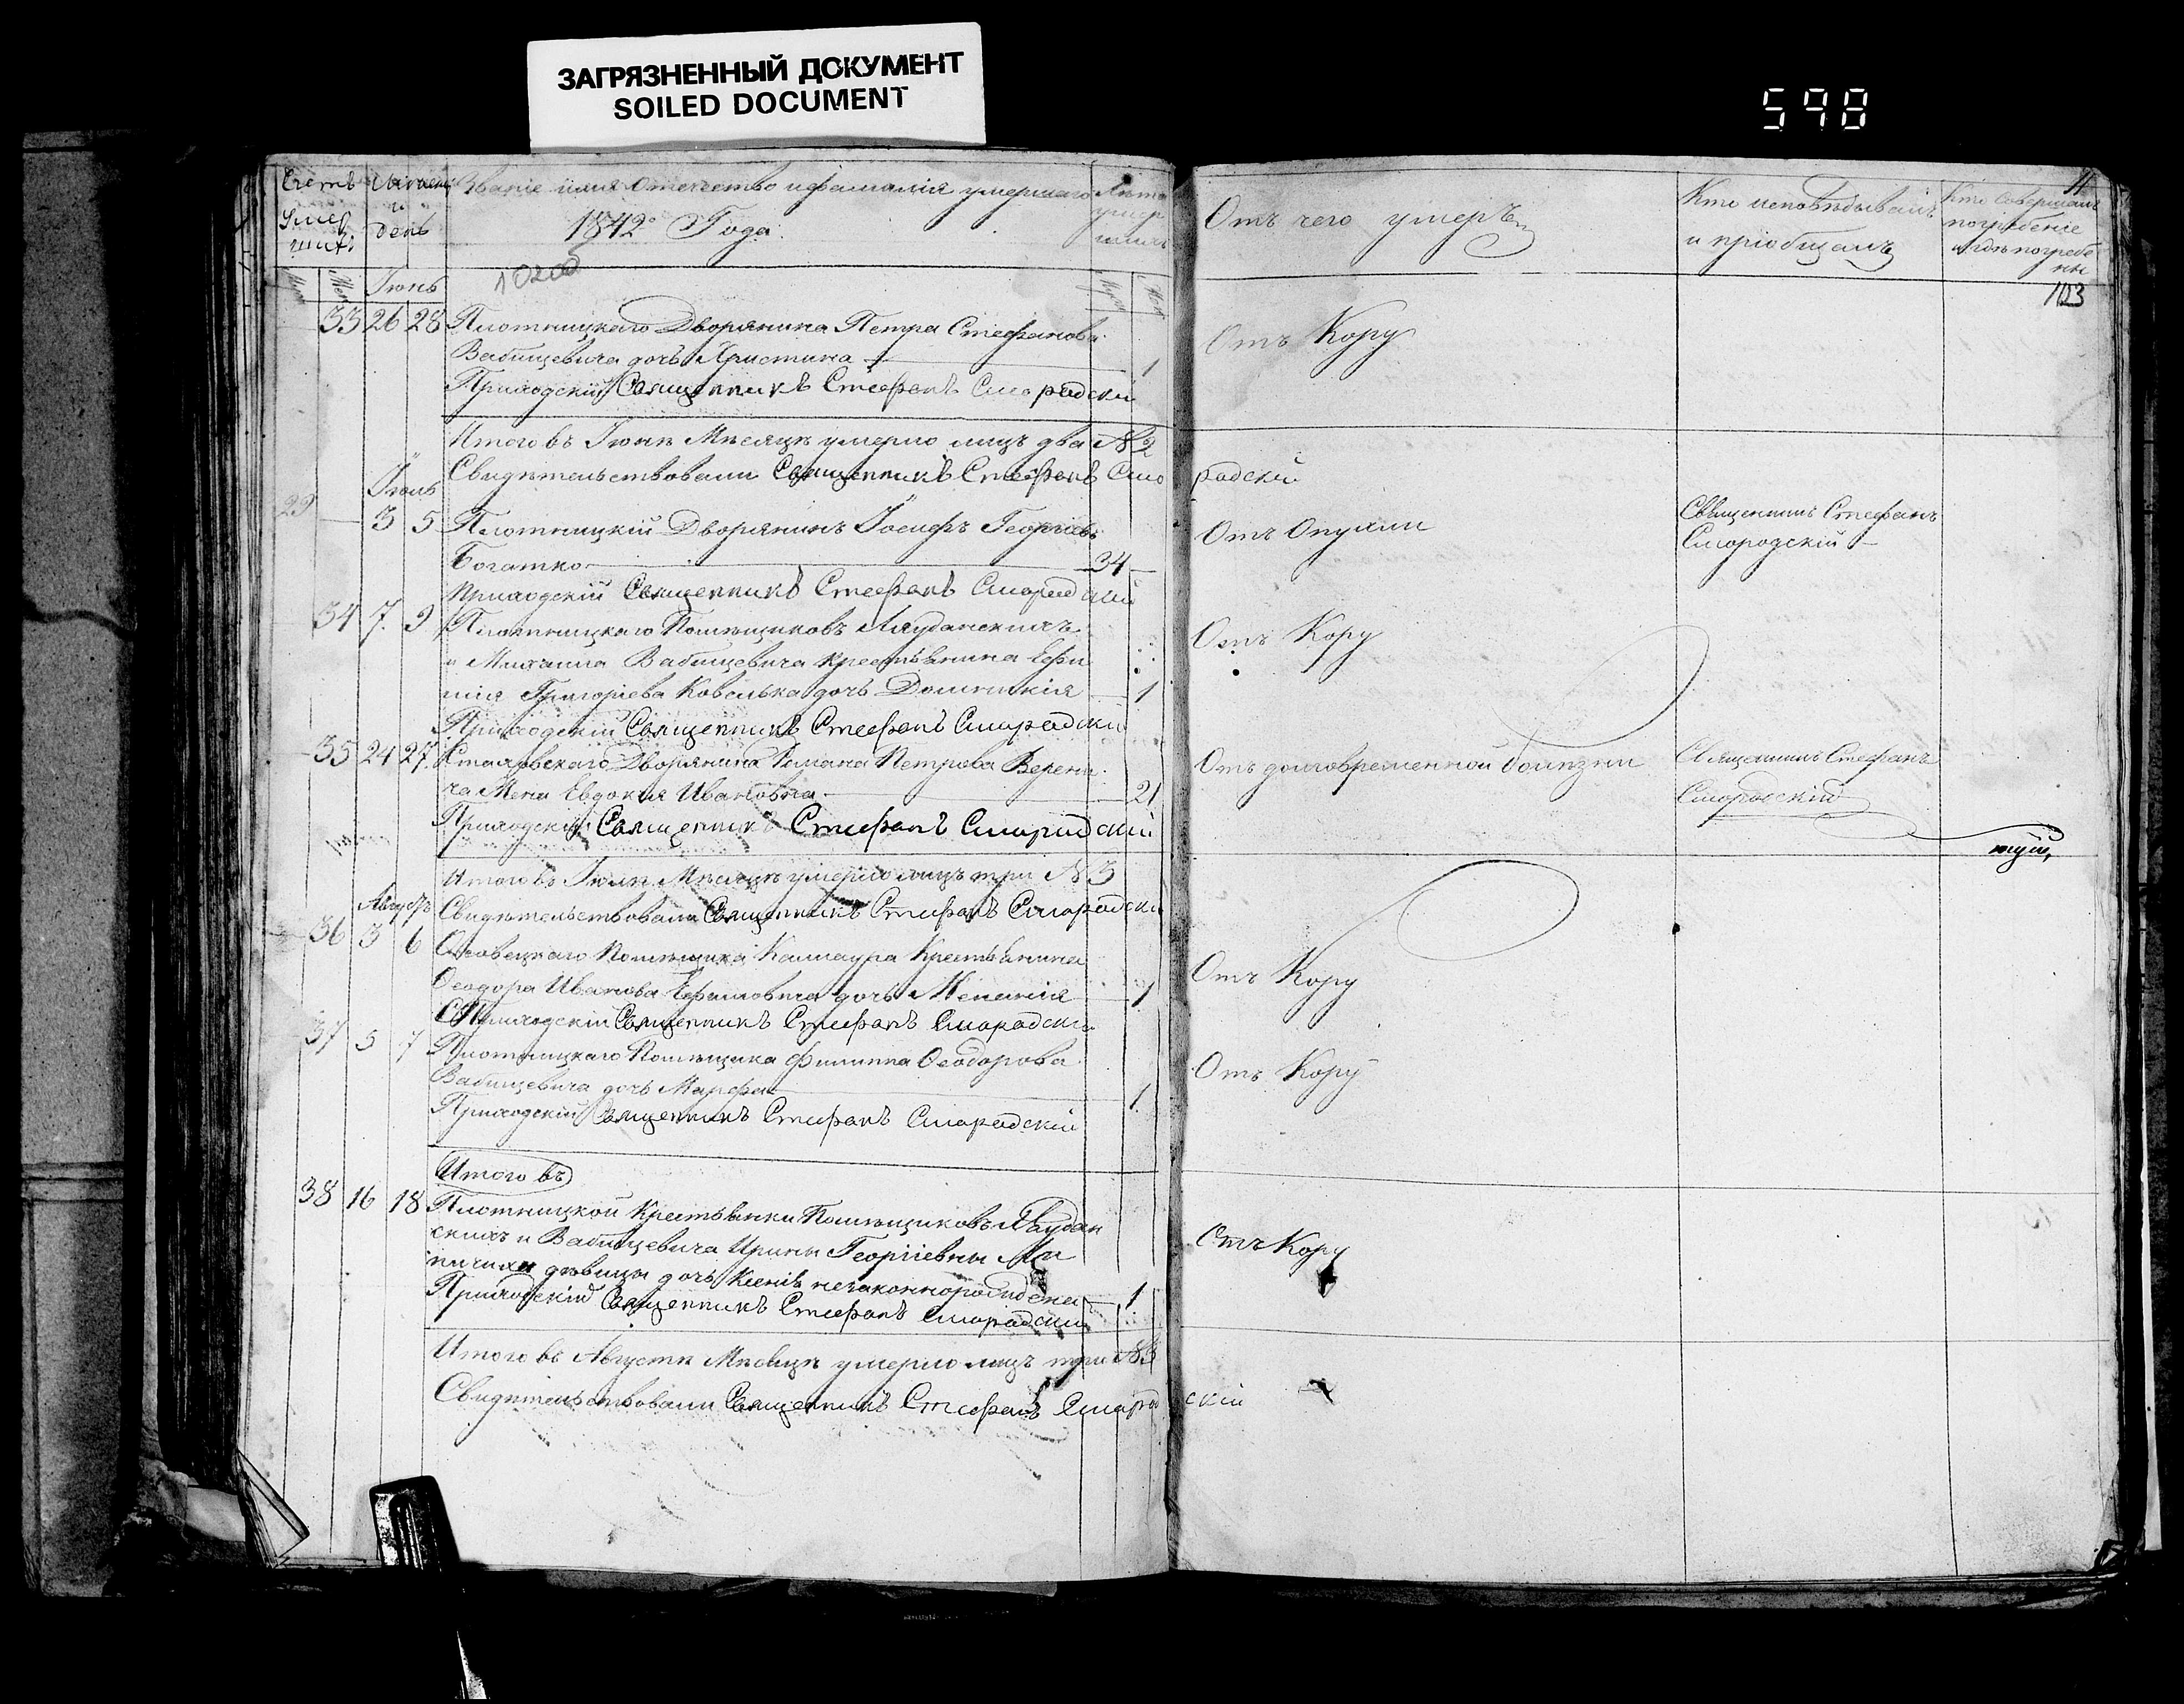 ЗАГРЯЗНЕННЫЙ ДОКУМЕНТ
SOILED DOCUMENT
598
Счетъ умершихъ
Мѣсяцъ и день
Званіе имя Отечество и фамилія умершаго
1842 Года
Лѣта умершихъ
Отъ чего умеръ
Кто исповѣдывалъ
и пріобщалъ
Кто совершалъ
погребеніе
и гдѣ погребены
11
103
Іюнь
33 26 28 Плотницкаго Дворянина Петра Стефанова
Вабищевича дочь Христина 1
Отъ Кору
Приходскій Священникъ Стефанъ Смородскій
Итого въ Іюнѣ Мѣсяцѣ умерло лицъ два № 2
Свидѣтельствовали Священникъ Стефанъ Смородскій
Іюль
29 3 5 Плотницкій Дворянинъ Іосифъ Георгіевъ
Богатко 34
Отъ Опухли
Священникъ Стефанъ
Смородскій
Приходскій Священникъ Стефанъ Смородскій
34 7 9 Плотницкаго Помѣщиковъ Ляуданскихъ
и Михаила Вабищевича крестьянина Ефи
мія Григоріева Ковелька дочь Домникія 1
Отъ Кору
Приходскій Священникъ Стефанъ Смородскій
35 24 27 Дворянина Романа Петрова Верени
ча Жена Евдокія Ивановна 21
Отъ долговременной болѣзни
Священникъ Стефанъ
Смородскій
Приходскій Священникъ Стефанъ Смородскій
Итого въ Іюлѣ Мѣсяцѣ умерло лицъ три № 3
Августъ
Свидѣтельствовали Священникъ Стефанъ Смородскій
36 3 6 Осовецкаго Помѣщика Крестьянина
Ѳеодора Иванова Ефимовича дочь Меланія 1
Отъ Кору
Приходскій Священникъ Стефанъ Смородскій
37 5 7 Плотницкаго Помѣщика Филиппа Ѳеодорова
Вабищевича дочь Марфа 1
Отъ Кору
Приходскій Священникъ Стефанъ Смородскій
Итого въ
38 16 18 Плотницкой Крестьянки Помѣщиковъ Ляудан
скихъ и Вабищевича Ирины Георгіевны
дѣвицы дочь Ксенія незаконнорожденна 1
Отъ Кору
Приходскій Священникъ Стефанъ Смородскій
Итого въ Августѣ Мѣсяцѣ умерло лицъ три № 3
Свидѣтельствовали Священникъ Стефанъ Смородскій